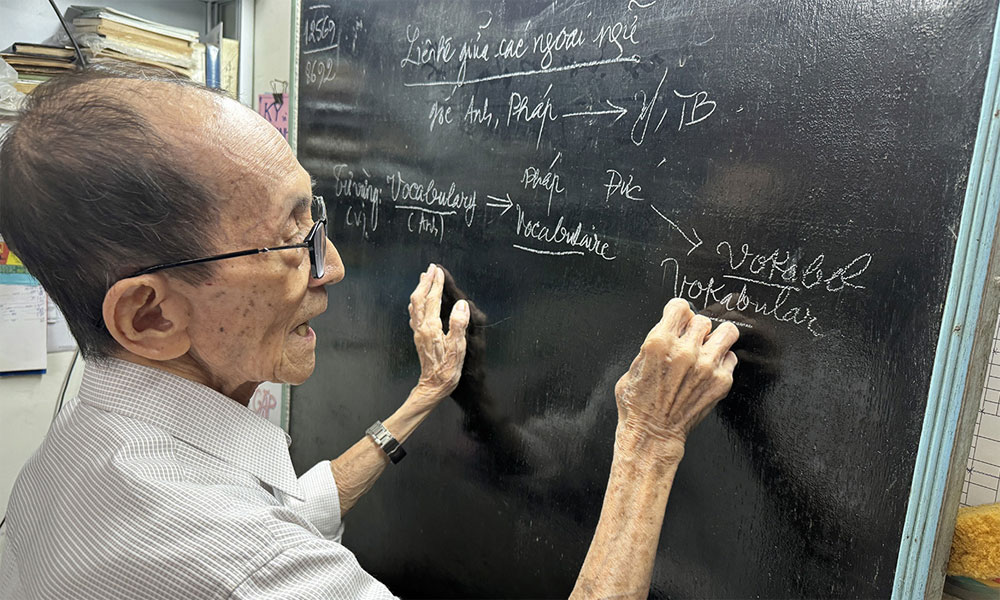 12569
8692
Liên hệ giữa các ngoại ngữ
gốc Anh, Pháp → Ý, TB
Pháp Đức
Từ vựng: Vocabulary ⇒ Vocabulaire
(V)
(Anh)
Vokabel
Vokabular
KÝ
GẤP